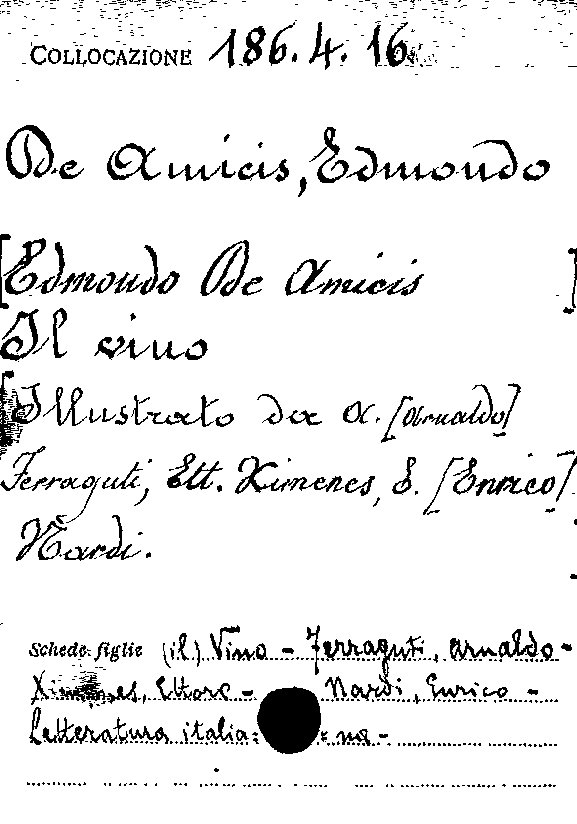 COLLOCAZIONE 186.4.16
De Amicis, Edmondo
[Edmondo De Amicis]
Il vino
Illustrato da A. [Arnaldo]
Ferraguti, Ett. Ximenes, E. [Enrico]
Nardi.
Schede figlie (il) Vino - Ferraguti, Arnaldo -
Ximenes, Ettore - Nardi, Enrico -
Letteratura italia= =na -